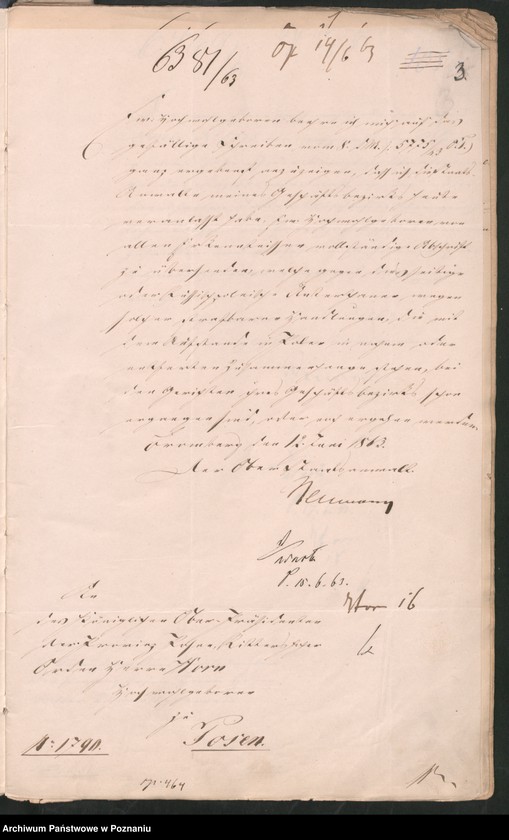 6381/63
14/6 63
3.
Ew. Hochwohlgeboren beehre ich mich auf das
gefällige Schreiben vom 8. d. M.
ganz ergebenst anzuzeigen, daß ich die Staats-
Anwälte meines Geschäftsbezirks heute
veranlaßt habe, Ew. Hochwohlgeboren von
allen Erkenntnissen vollständige Abschrift
zu übersenden, welche gegen diesseitige
oder Russisch polnische Unterthanen wegen
solcher strafbarer Handlungen, die mit
dem Aufstande in Polen in nahem oder
entfernten Zusammenhange stehen, bei
den Gerichten ihres Geschäftsbezirks schon
ergangen sind, oder noch ergehen werden.
Bromberg den 12. Juni 1863.
Der Ober-Staatsanwalt.
P. 15.6.63.
16
An
den Königlichen Ober-Präsidenten
der Provinz Posen, Ritter
Orden Herrn Horn
Hochwohlgeboren
zu
Posen.
N: 1790.
Archiwum Państwowe w Poznaniu